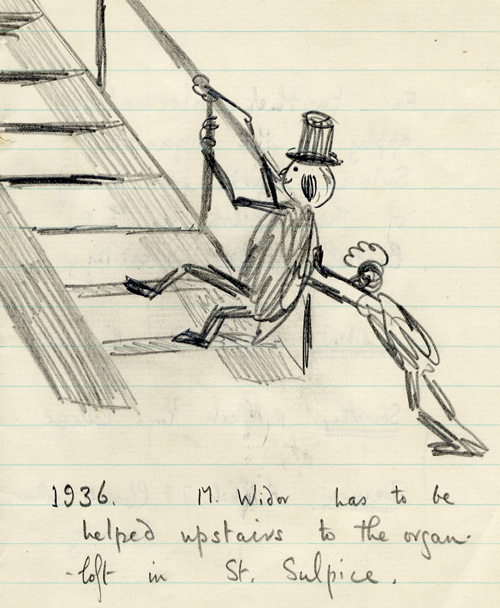 1936. M. Widor has to be
helped upstairs to the organ-
-loft in St. Sulpice.